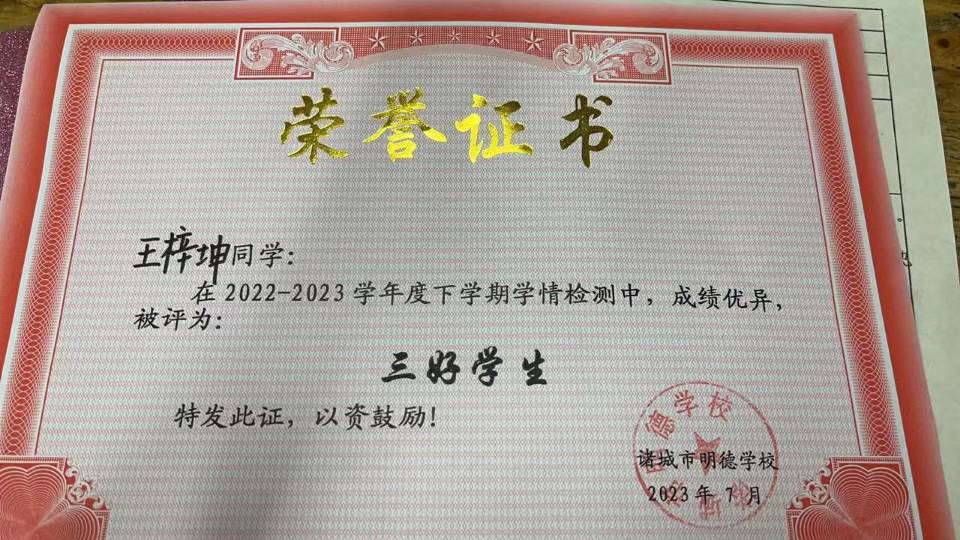 荣誉证书
王梓坤同学：
在2022-2023学年度下学期学情检测中，成绩优异，
被评为：
三好学生
特发此证，以资鼓励！
诸城市明德学校
2023年 7 月